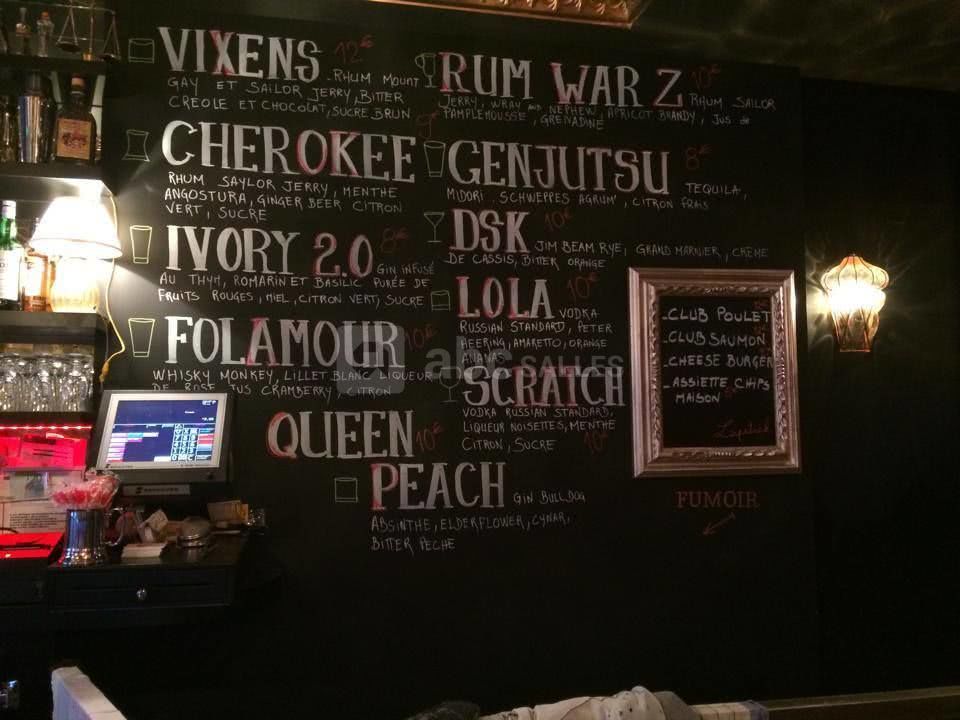 VIXENS 12€
RHUM MOUNT
GAY ET SAILOR JERRY, BITTER
CREOLE ET CHOCOLAT, SUCRE BRUN
CHEROKEE 9€
RHUM SAYLOR JERRY, MENTHE
ANGOSTURA, GINGER BEER CITRON
VERT, SUCRE
IVORY 2.0 8€
GIN INFUSÉ
AU THYM, ROMARIN ET BASILIC PURÉE DE
FRUITS ROUGES, MIEL, CITRON VERT, SUCRE
FOLAMOUR 10€
WHISKY MONKEY, LILLET BLANC LIQUEUR
DE ROSE JUS CRAMBERRY, CITRON
QUEEN 10€
PEACH GIN BULLDOG
ABSINTHE, ELDERFLOWER, CYNAR,
BITTER PECHE
RUM WAR Z 10€
RHUM SAILOR
JERRY, WRAY AND NEPHEW, APRICOT BRANDY, JUS de
PAMPLEMOUSSE, GRENADINE
GENJUTSU 8€
TEQUILA,
MIDORI, SCHWEPPES AGRUM', CITRON FRAIS
DSK 10€
JIM BEAM RYE, GRAND MARNIER, CRÈME
DE CASSIS, BITTER ORANGE
LOLA 10€
VODKA
RUSSIAN STANDARD, PETER
HEERING, AMARETTO, ORANGE
ANANAS
SCRATCH
VODKA RUSSIAN STANDARD,
LIQUEUR NOISETTES, MENTHE
CITRON, SUCRE 10€
abc SALLES
-CLUB POULET
-CLUB SAUMON
-CHEESE BURGER
-ASSIETTE CHIPS
MAISON
FUMOIR